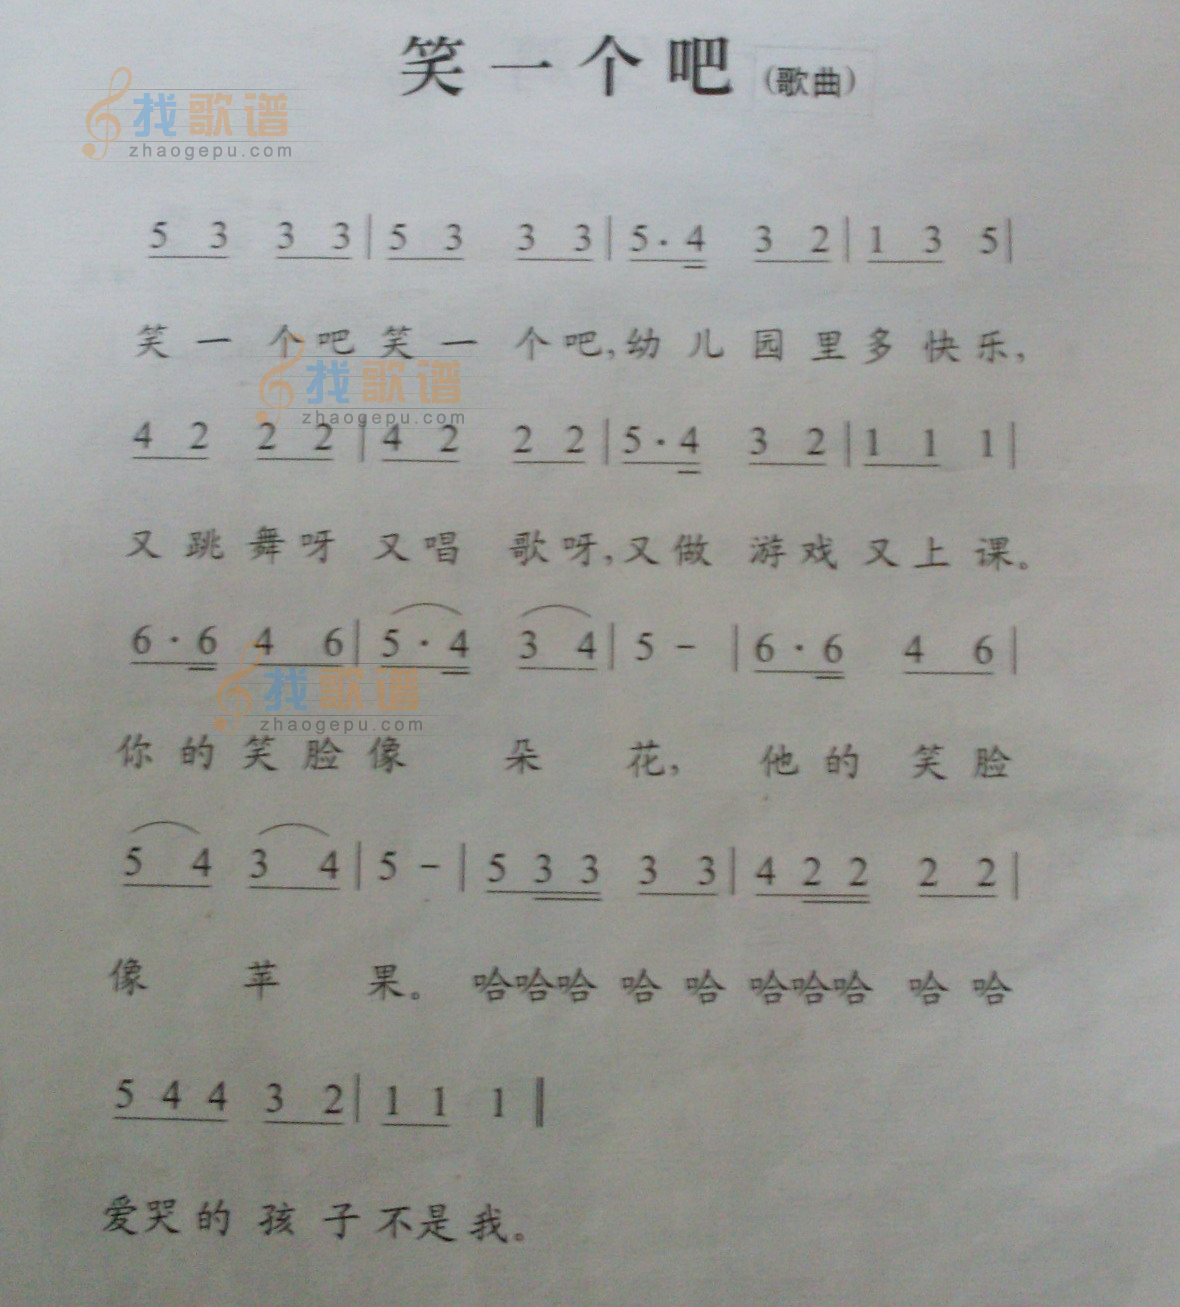 笑一个吧(歌曲)
找歌谱
zhaogepu.com
5 3 3 3 | 5 3 3 3 | 5 · 4 3 2 | 1 3 5 |
笑一个吧笑一个吧,幼儿园里多快乐,
找歌谱
zhaogepu.com
4 2 2 2 | 4 2 2 2 | 5 · 4 3 2 | 1 1 1 |
又跳舞呀又唱歌呀,又做游戏又上课。
6 · 6 4 6 | 5 · 4 3 4 | 5 - | 6 · 6 4 6 |
找歌谱
zhaogepu.com
你的笑脸像朵花,他的笑脸
5 4 3 4 | 5 - | 5 3 3 3 3 | 4 2 2 2 2 |
像苹果。哈哈哈哈哈哈哈哈哈哈
5 4 4 3 2 | 1 1 1 ‖
爱哭的孩子不是我。